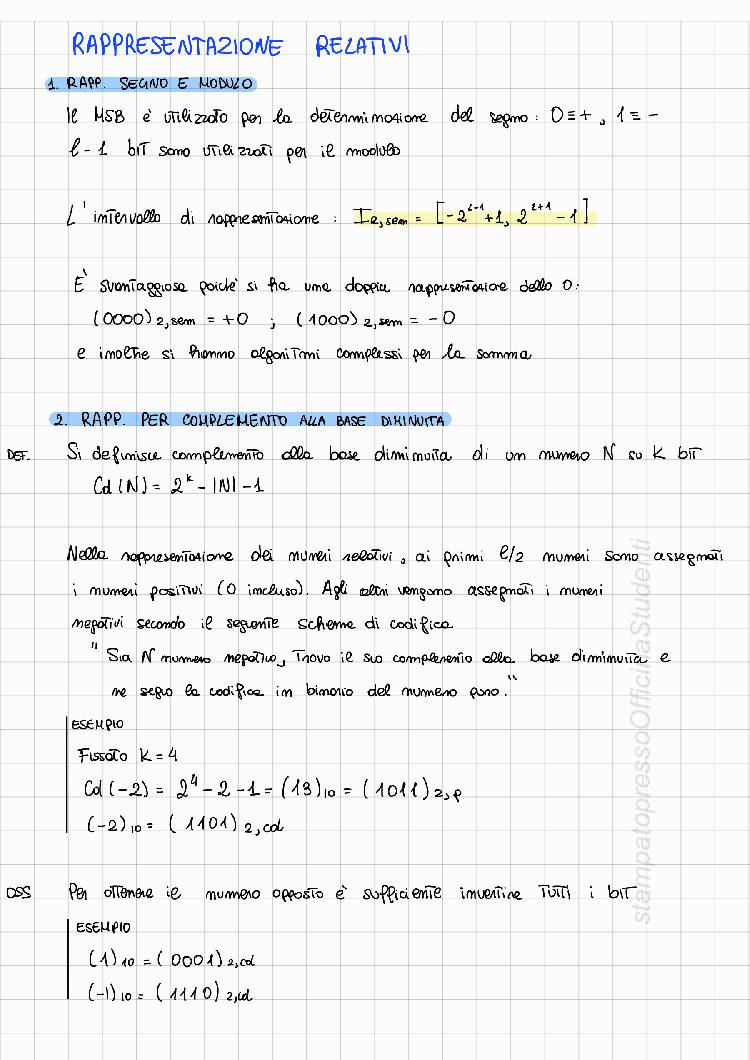 RAPPRESENTAZIONE RELATIVI
1. RAPP. SEGNO E MODULO
Il MSB è utilizzato per la determinazione del segno: 0≡+, 1≡-
l-1 bit sono utilizzati per il modulo
L'intervallo di rappresentazione: I₂,sem = [-2^(l-1)+1, 2^(l+1)-1]
È svantaggiosa poichè si ha una doppia rappresentazione dello 0:
(0000)₂,sem = +0 ; (1000)₂,sem = -0
e inoltre si hanno algoritmi complessi per la somma
2. RAPP. PER COMPLEMENTO ALLA BASE DIMINUITA
DEF. Si definisce complemento alla base diminuita di un numero N su K bit
Cd(N) = 2^k - |N| - 1
Nella rappresentazione dei numeri relativi, ai primi l/2 numeri sono assegnati
i numeri positivi (0 incluso). Agli altri vengono assegnati i numeri
negativi secondo il seguente schema di codifica
"Sia N numero negativo, trovo il suo complemento alla base diminuita e
ne seguo la codifica in binario del numero puro."
ESEMPIO
Fissato K=4
Cd(-2) = 2⁴-2-1 = (13)₁₀ = (1011)₂,p
(-2)₁₀ = (1101)₂,cd
OSS Per ottenere il numero opposto è sufficiente invertire TUTTI i bit
ESEMPIO
(1)₁₀ = (0001)₂,cd
(-1)₁₀ = (1110)₂,cd
stampatopressoOfficinaStudenti